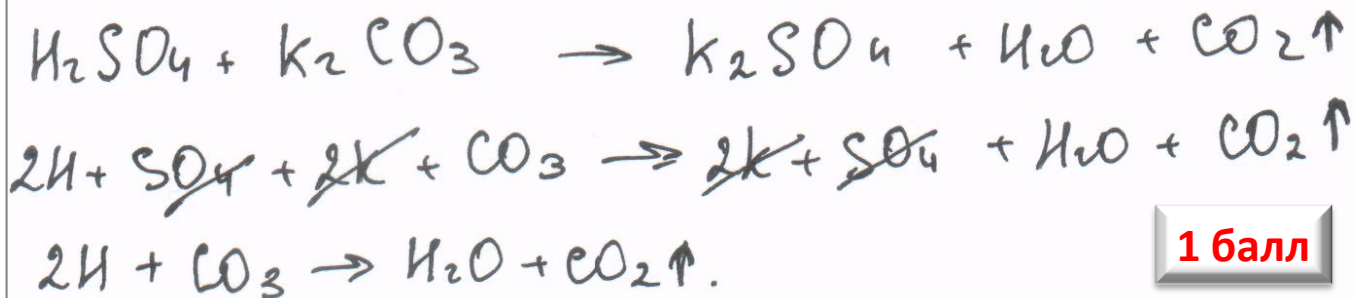 H₂SO₄ + K₂CO₃ → K₂SO₄ + H₂O + CO₂↑
2H + SO₄ + 2K + CO₃ → 2K + SO₄ + H₂O + CO₂↑
2H + CO₃ → H₂O + CO₂↑.
1 балл